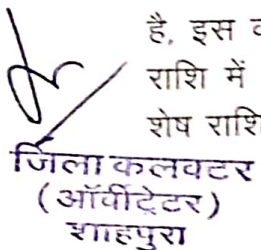 है, इस
राशि में
शेष राशि
जिला कलक्टर
(ऑर्वीट्रेटर)
शाहपुरा